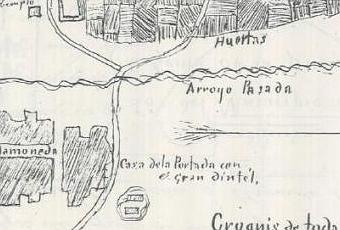 Templo
Huertas
Arroyo Pasada
Almoneda
Casa de la Portada con
el Gran dintel,
Croquis de toda